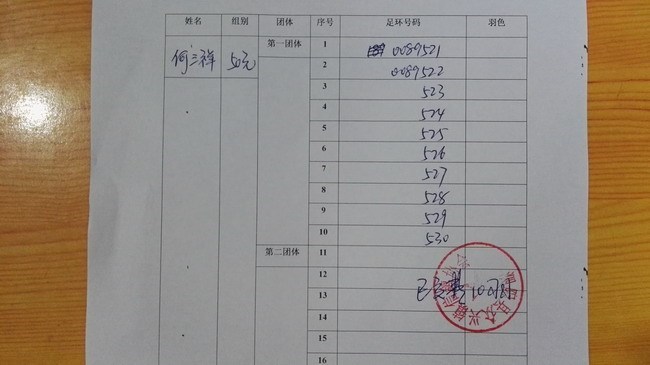 姓名 组别 团体 序号 足环号码 羽色
何三祥 50元 第一团体 1 0089521
2 0089522
3 523
4 524
5 525
6 526
7 527
8 528
9 529
10 530
第二团体 11
12
13
14
15
16